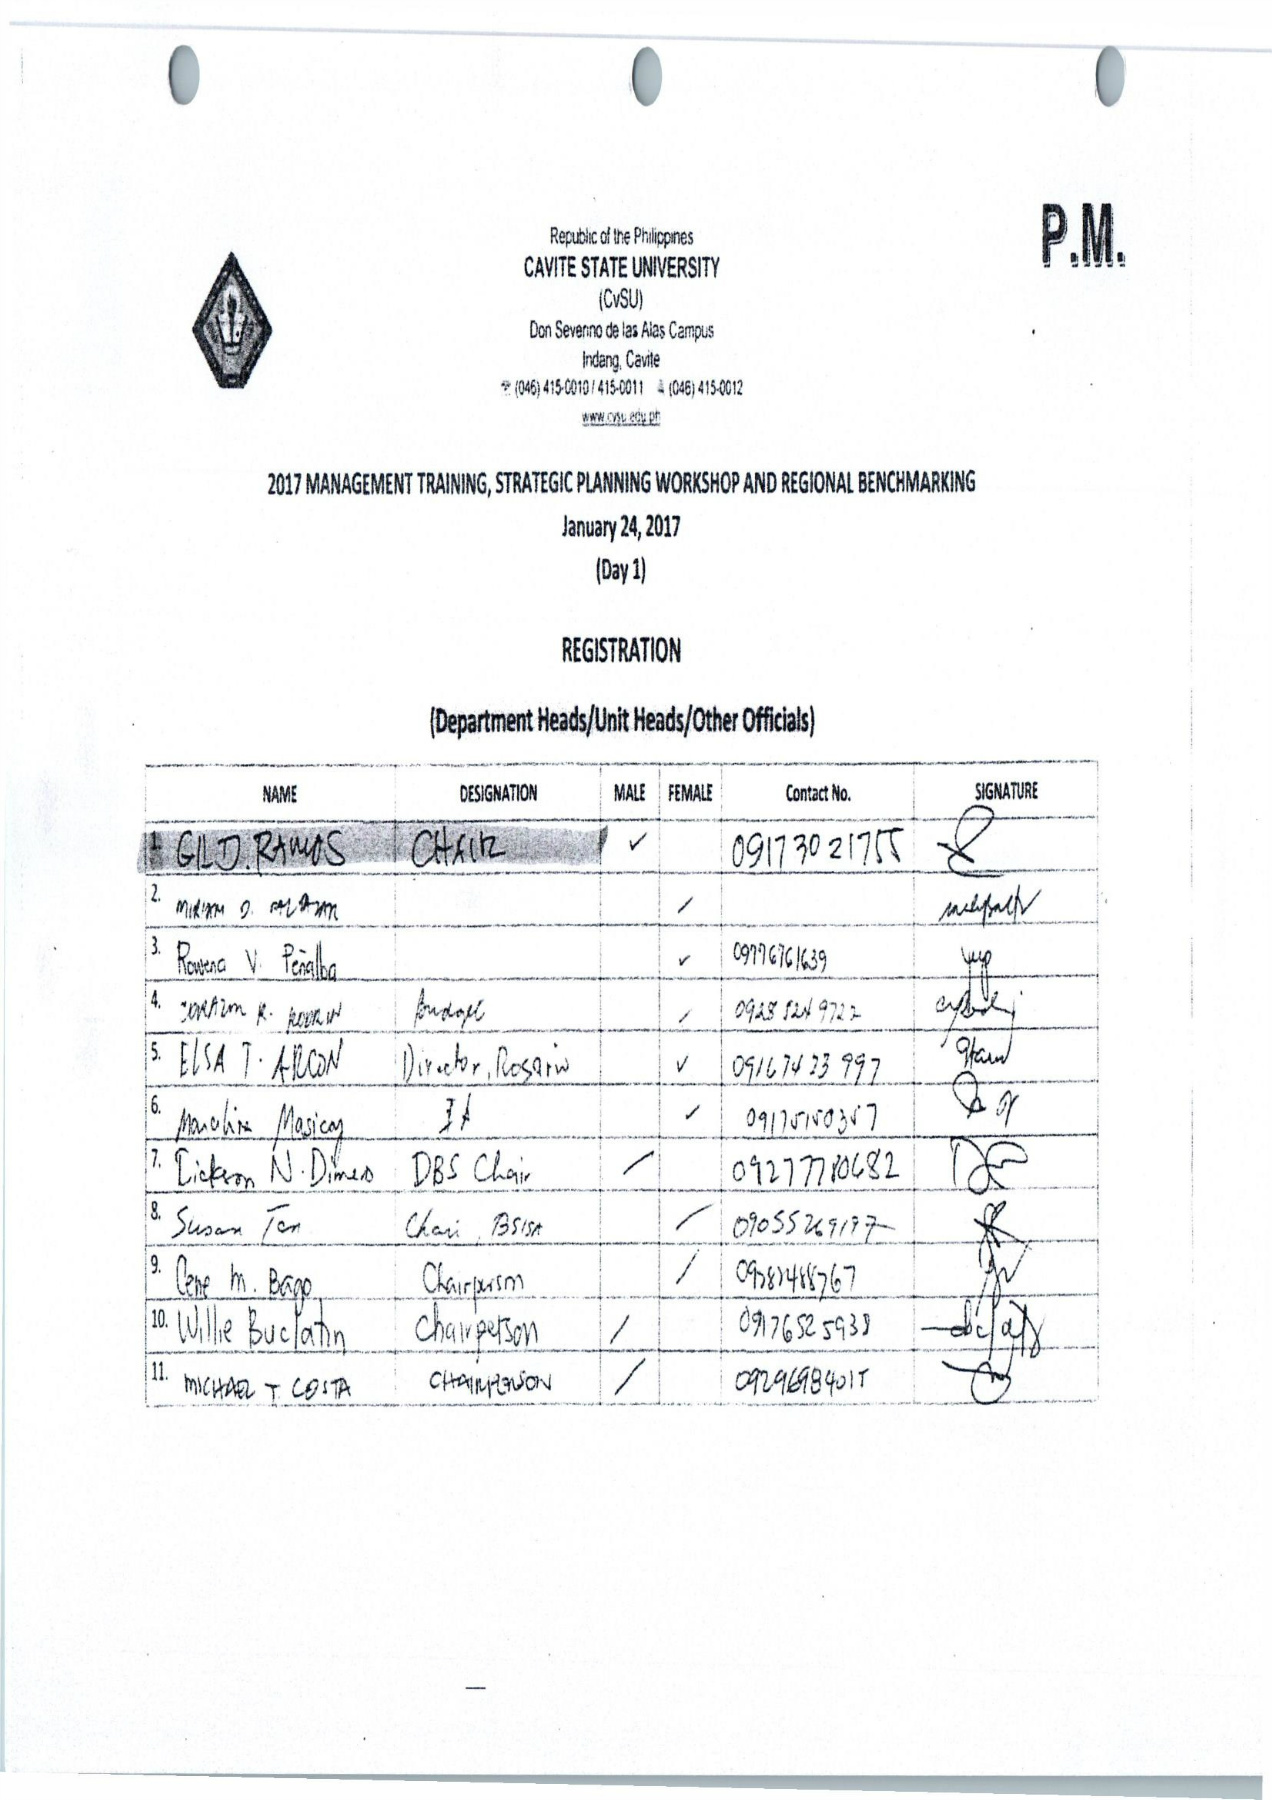 P.M.
Republic of the Philippines
CAVITE STATE UNIVERSITY
(CvSU)
Don Severino de las Alas Campus
Indang, Cavite
(046) 415-0010 / 415-0011 (046) 415-0012
www.cvsu.edu.ph
2017 MANAGEMENT TRAINING, STRATEGIC PLANNING WORKSHOP AND REGIONAL BENCHMARKING
January 24, 2017
(Day 1)
REGISTRATION
(Department Heads/Unit Heads/Other Officials)
NAME DESIGNATION MALE FEMALE Contact No. SIGNATURE
1. GIL D. RAMOS CHAIR ✓ 09173021755
2. MIRIAM D.
3. Rowena V. Peñalba ✓ 09776761639
4. R. Budget
5. ELSA T. ARCON Director, Rosario ✓ 09167423997
6. IA ✓
7. Dickson N. Dimero DBS Chair 09277780682
8. Susan Tan BSISA
9. M. Bago Chairperson
10. Willie Buclatin Chairperson 09176525938
11. MICHAEL T COSTA CHAIRPERSON 09296984015